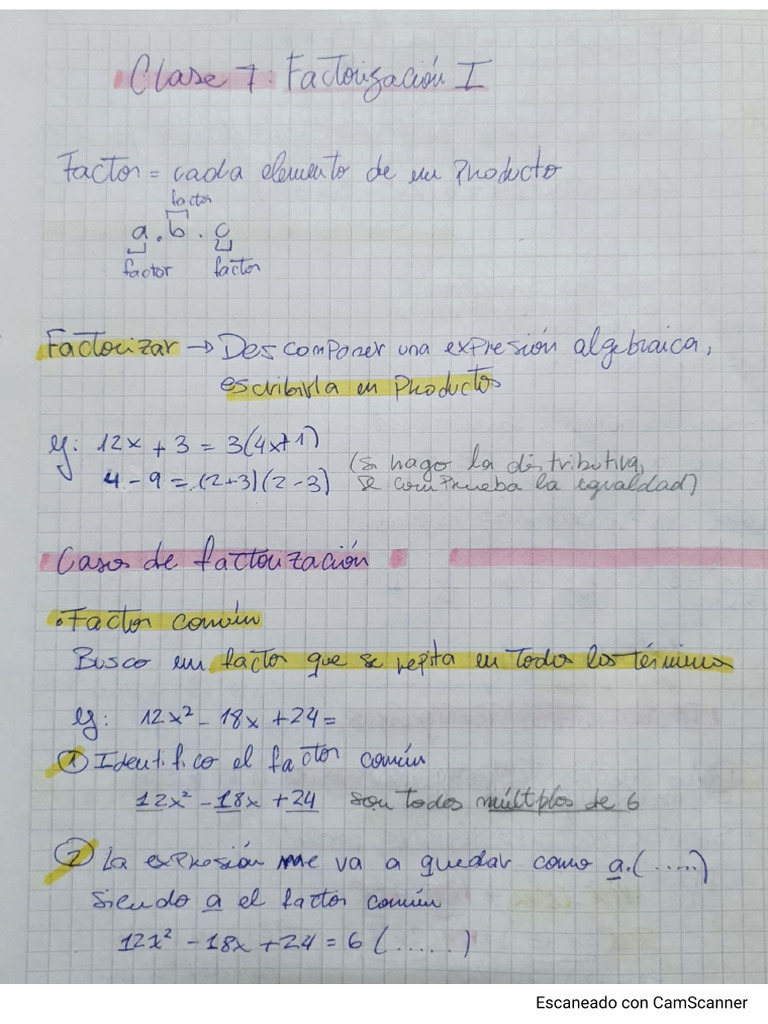 Clase 7: Factorización I
Factor = cada elemento de un producto
factor
a . b . c
factor factor
Factorizar → Descomponer una expresión algebraica,
escribirla en productos
ej: 12x + 3 = 3(4x+1)
4 - 9 = (2+3)(2-3)
(Si hago la distributiva,
se comprueba la igualdad)
Casos de factorización
• Factor común
Busco un factor que se repita en todos los términos
ej: 12x² - 18x + 24 =
① Identifico el factor común
12x² - 18x + 24 son todos múltplos de 6
② La expresión me va a quedar como a.(.....)
siendo a el factor común
12x² - 18x + 24 = 6 (.....)
Escaneado con CamScanner